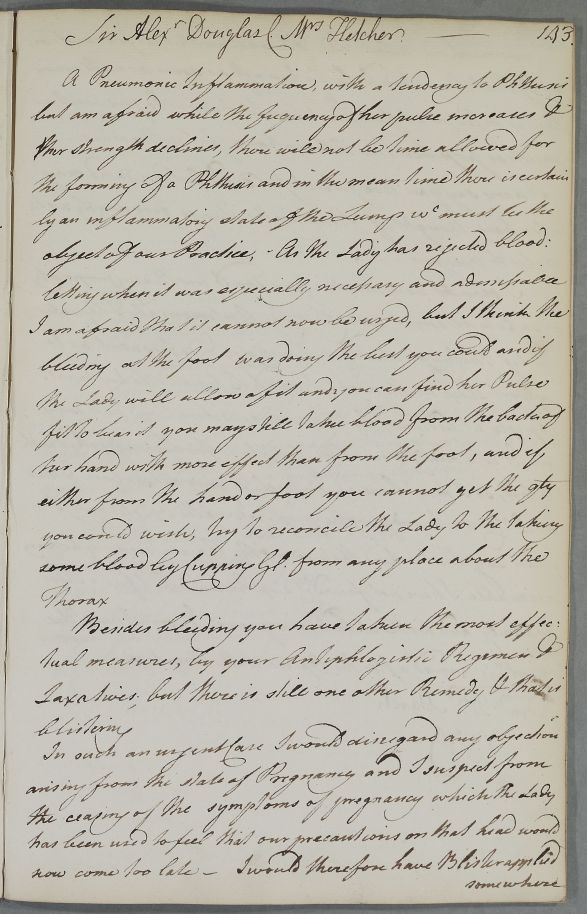 Sir Alexr Douglas C Mrs Fletcher — 143.
A Pneumonic Inflammation, with a tendency to Phthisis
but am afraid while the frequency of her pulse increases &
her strength declines, there will not be time allowed for
the forming of a Phthisis and in the mean time there is certain
ly an inflammatory state of the Lungs wc must be the
object of our Practice, - As the Lady has rejected blood:
letting when it was especially necessary and admissable
I am afraid that it cannot now be urged, but I think the
bleeding at the foot was doing the best you could and if
the Lady will allow of it and you can find her Pulse
fit to bear it you may still take blood from the back of
her hand with more effect than from the foot, and if
either from the hand or foot you cannot get the qty
you could wish, try to reconcile the Lady to the taking
some blood by Cupping Gl. from any place about the
Thorax
Besides bleeding you have taken the most effec:
tual measures, by your Antiphlogistic Regimen &
Laxatives, but there is still one other Remedy & that is
blistering
In such an urgent Case I would disregard any objection
arising from the state of Pregnancy and I suspect from
the ceasing of the symptoms of pregnancy which the Lady
has been used to feel that our precautions on that head would
now come too late - I would therefore have Blister applied
somewhere